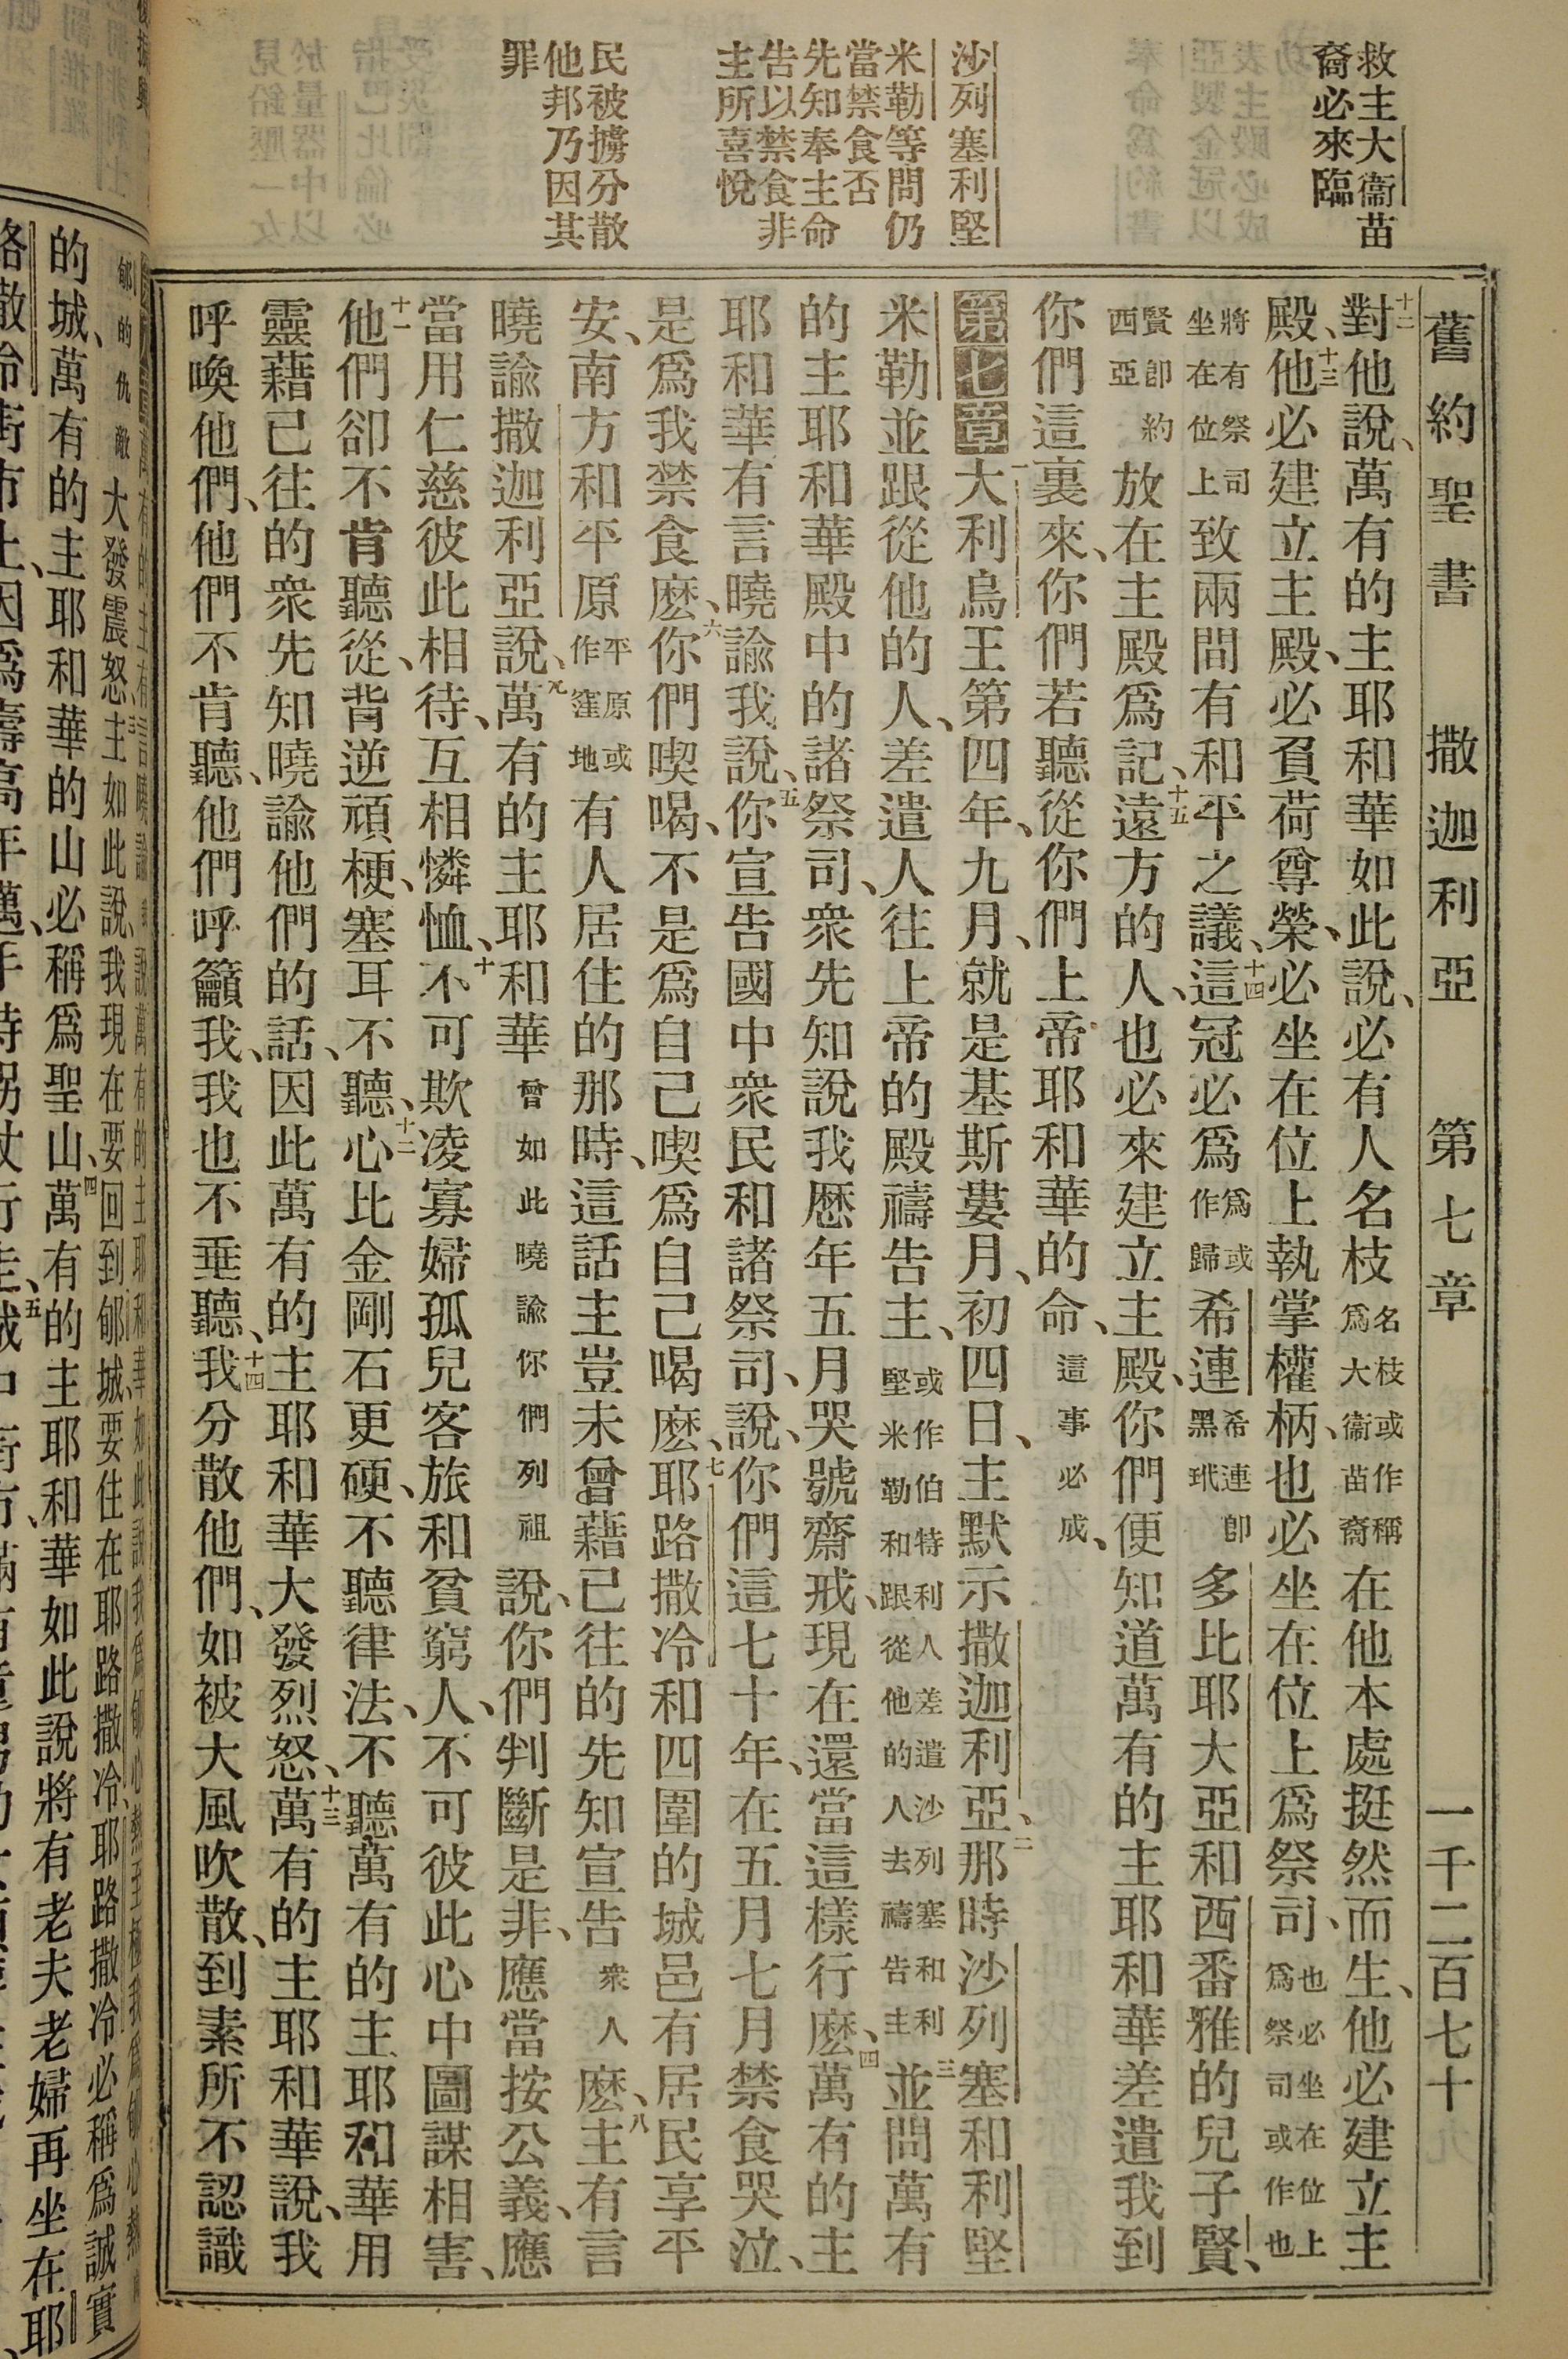 救主大衞苗
裔必來臨
沙列塞利堅
米勒等問仍
當禁食否
先知奉主命
告以禁食非
主所喜悅
民被擄分散
他邦乃因其
罪
舊約聖書 撒迦利亞 第七章 一千二百七十九
十二對他說、萬有的主耶和華如此說、必有人名枝名枝或作稱爲大衞苗裔在他本處挺然而生、他必建立主
殿、十三他必建立主殿、必負荷尊榮、必坐在位上執掌權柄、也必坐在位上爲祭司、也必坐在位上爲祭司或作也
將有祭司坐在位上致兩間有和平之議、十四這冠必爲爲或作歸希連希連卽黑玳多比耶大亞和西番雅的兒子賢、
賢卽約西亞放在主殿爲記、十五遠方的人、也必來建立主殿、你們便知道萬有的主耶和華差遣我到
你們這裏來、你們若聽從你們上帝耶和華的命、這事必成、
第七章一大利烏王第四年、九月、就是基斯婁月、初四日、主默示撒迦利亞、二那時沙列塞和利堅
米勒並跟從他的人、差遣人往上帝的殿禱告主、或作伯特利人差遣沙列塞和利堅米勒和跟從他的人去禱告主三並問萬有
的主耶和華殿中的諸祭司、衆先知說、我歷年五月哭號齋戒、現在還當這樣行麽、四萬有的主
耶和華有言曉諭我說、五你宣告國中衆民和諸祭司、說、你們這七十年、在五月七月禁食哭泣、
是爲我禁食麽、六你們喫喝、不是爲自己喫爲自己喝麽、七耶路撒冷和四圍的城邑有居民享平
安、南方和平原平原或作窪地有人居住的那時、這話主豈未曾藉已往的先知宣告衆人麽、八主有言
曉諭撒迦利亞說、九萬有的主耶和華曾如此曉諭你們列祖說、你們判斷是非、應當按公義、應
當用仁慈彼此相待、互相憐恤、十不可欺凌寡婦孤兒客旅和貧窮人、不可彼此心中圖謀相害、
十一他們卻不肯聽從、背逆頑梗、塞耳不聽、十二心比金剛石更硬、不聽律法、不聽萬有的主耶和華用
靈藉已往的衆先知曉諭他們的話、因此萬有的主耶和華大發烈怒、十三萬有的主耶和華說、我
呼喚他們、他們不肯聽、他們呼籲我、我也不垂聽、十四我分散他們、如被大風吹散、到素所不認識
郇的仇敵大發震怒、三主如此說、我現在要回到郇城、要住在耶路撒冷、耶路撒冷必稱爲誠實
的城、萬有的主耶和華的山必稱爲聖山、四萬有的主耶和華如此說將有老夫老婦再坐在耶